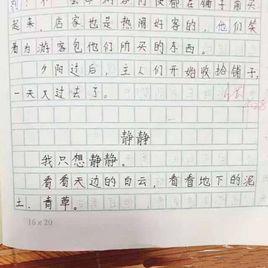 起来，店家也是热情好客的，他们笑
着为游客包他们所买的东西。
夕阳过后，主人们开始收拾铺子，
一天又过去了。
静静
我只想静静。
看看天边的白云，看看地下的泥
土、青草。
16×20